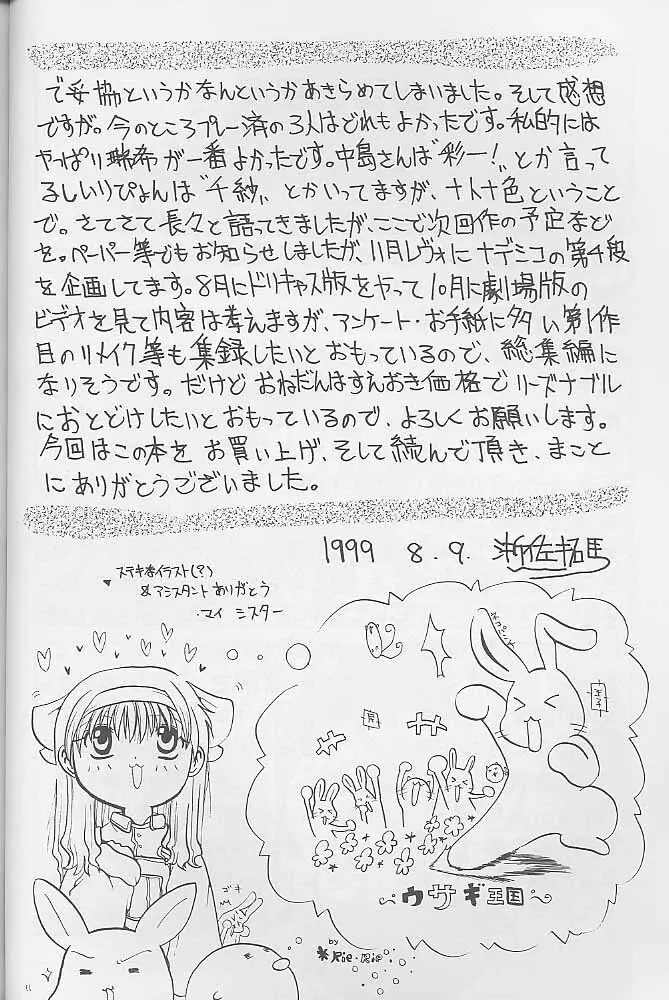 で妥協というかなんというかあきらめてしまいました。そして感想
ですが。今のところプレー済の3人はどれもよかったです。私的には
やっぱり瑞希が一番よかったです。中島さんは"彩ー!"とか言って
るしいりぴょんは"千紗"とかいってますが、十人十色ということ
で。さてさて長々と語ってきましたが、ここで次回作の予定などど
を。ペーパー等でもお知らせしましたが、11月レヴォにナデシコの第4段
を企画してます。8月にドリキャス版をやって10月に劇場版の
ビデオを見て内容は考えますが、アンケート・お手紙に多い第1作
目のリメイク等も集録したいとおもっているので、総集編に
なりそうです。だけどおねだんはすえおき価格でリーズナブル
におとどけしたいとおもっているので、よろしくお願いします。
今回はこの本をお買い上げ、そして続んで頂き、まこと
にありがとうございました。
1999 8.9.
ステキなイラスト(?)
&アシスタントありがとう
・マイ シスター
王子
ゴキ
~ウサギ王国~
by
*Rie・Rie